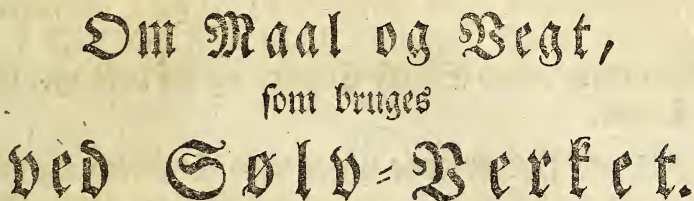 Om Maal og Vegt,
som bruges
ved Sølv-Verket.